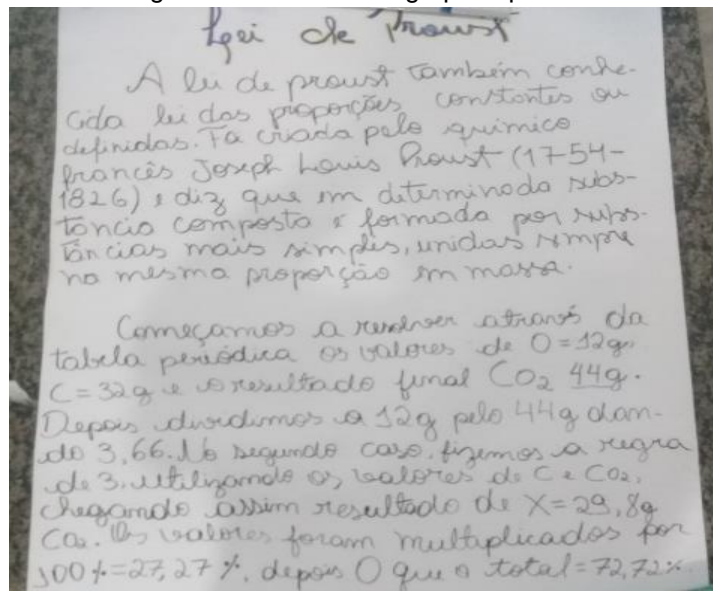 Lei de Proust
A lei de proust também conhe-
cida lei das proporções constantes ou
definidas. Fa criada pelo químico
francês Joseph Louis Proust (1754-
1826), diz que em determinada subs-
tância composta é formada por subs-
tâncias mais simples, unidas sempre
na mesma proporção em massa.
Começamos a resolver através da
tabela periódica os valores de O = 12g,
C = 32g e o resultado final CO2 44g.
Depois dividimos a 12g pelo 44g dan-
do 3,66. No segundo caso, fizemos a regra
de 3, utilizando os valores de C e CO2,
chegando assim resultado de X = 29,8g
CO2. Os valores foram multiplicados por
100 % = 27,27 %, depois O que o total = 72,72 %